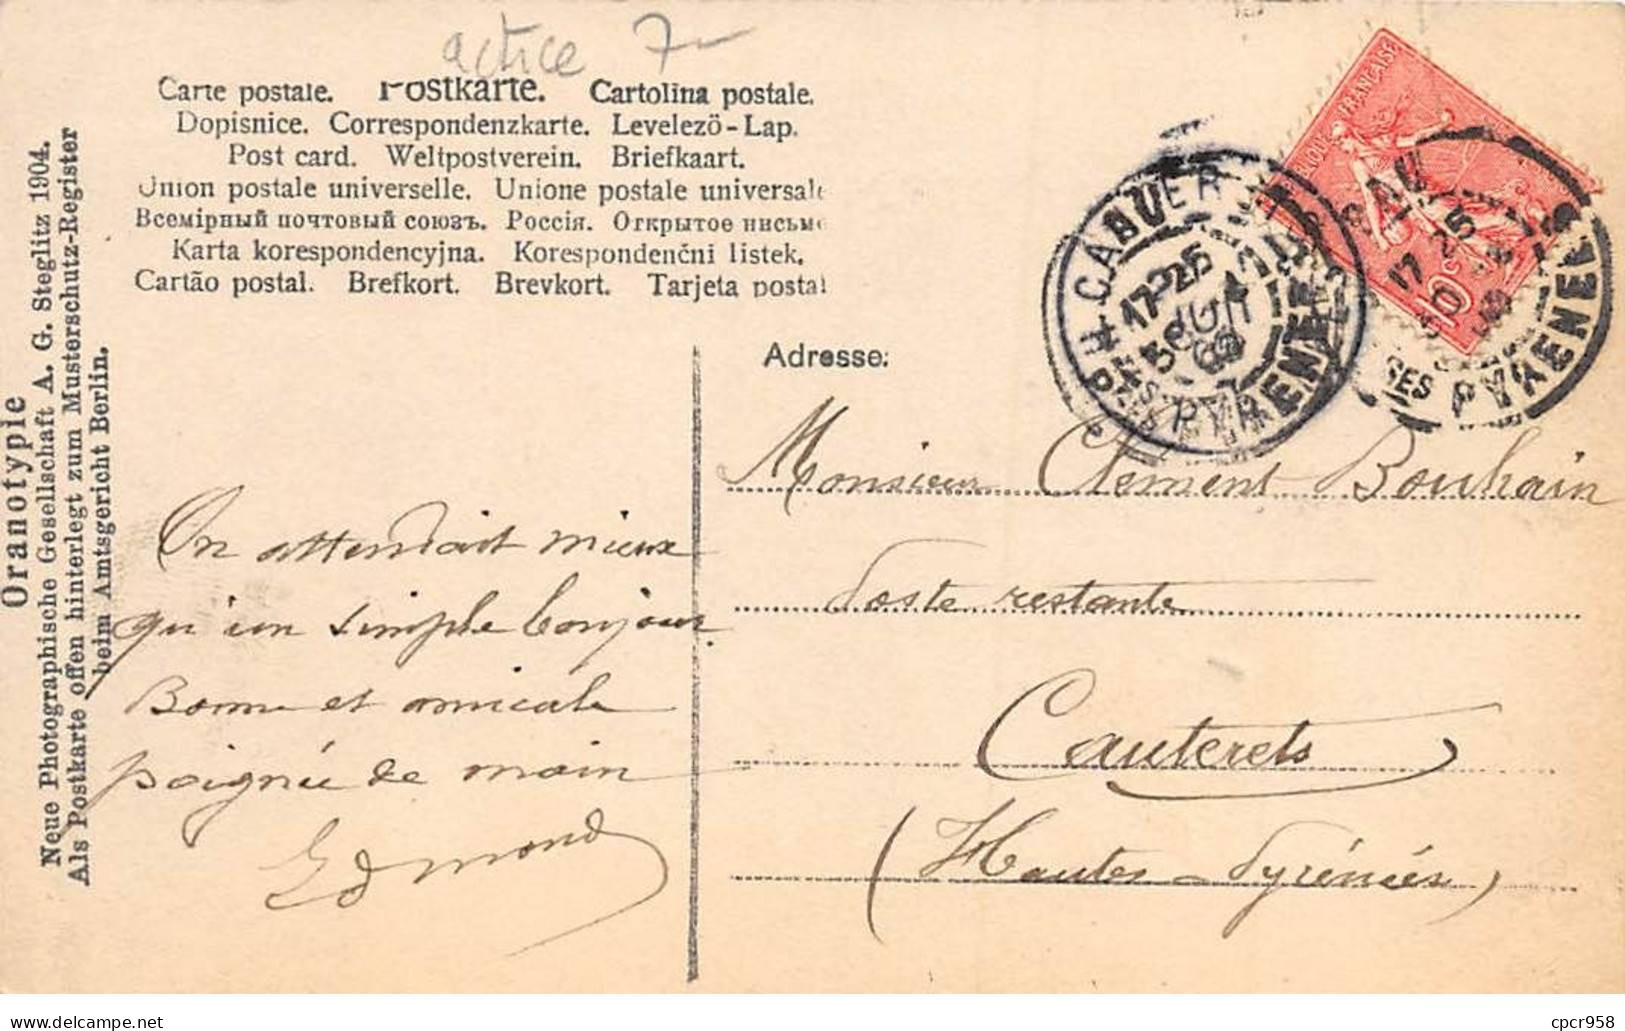 actice 7
Carte postale. Postkarte. Cartolina postale.
Dopisnice. Correspondenzkarte. Levelezö-Lap.
Post card. Weltpostverein. Briefkaart.
Union postale universelle. Unione postale universale
Всемірный почтовый союзъ. Россія. Открытое письмо
Karta korespondencyjna. Korespondenčni listek.
Cartão postal. Brefkort. Brevkort. Tarjeta postal
Oranotypie
Neue Photographische Gesellschaft A. G. Steglitz 1904.
Als Postkarte offen hinterlegt zum Musterschutz-Register
beim Amtsgericht Berlin.
FRANÇAISE
10c
PAU
17 25
PYRENEES
17 25
PYRENEES
Adresse:
Monsieur Clement Bouhain
Poste restante
Cauterets
(Hautes-Pyrénées)
On attendait mieux
qu'un simple bonjour.
Bonne et amicale
poignée de main
Edmond
https://www.delcampe.net
cpcr958